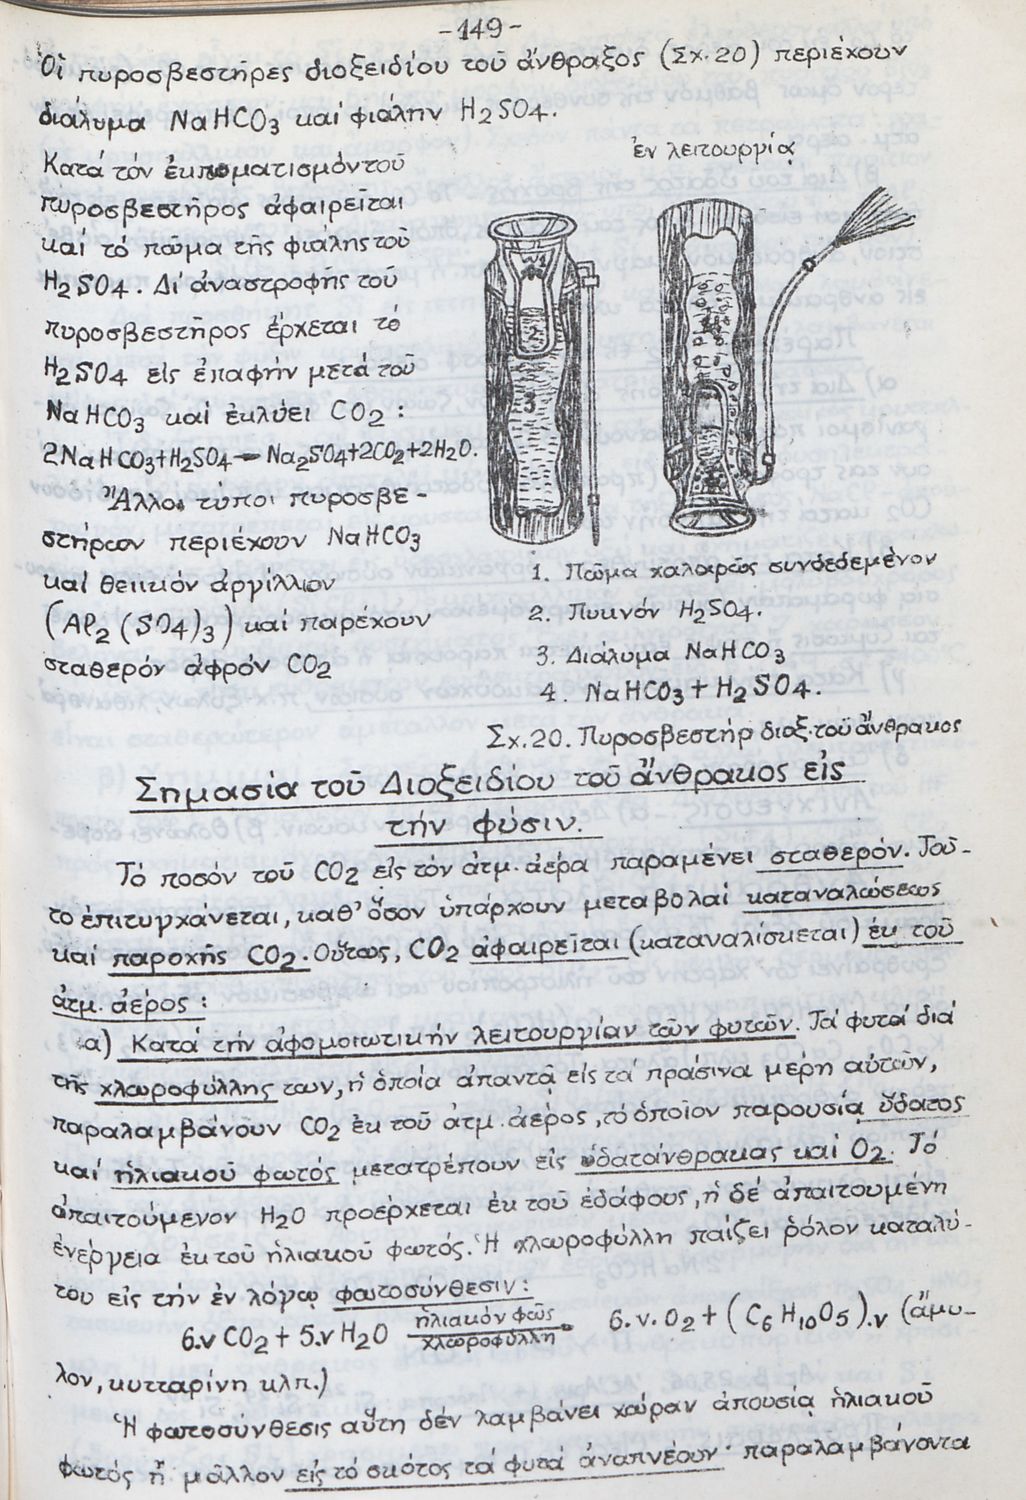 -149-
Οἱ πυροσβεστῆρες διοξειδίου τοῦ ἄνθραξος (Σχ.20) περιέχουν
διάλυμα NaHCO3 καί φιάλην H2SO4.
ἐν λειτουργίᾳ
Κατά τόν ἐκπωματισμόν τοῦ
πυροσβεστῆρος ἀφαιρεῖται
καί τό πῶμα τῆς φιάλης τοῦ
H2SO4. Δι' ἀναστροφῆς τοῦ
πυροσβεστῆρος ἔρχεται τό
H2SO4 εἰς ἐπαφήν μετά τοῦ
NaHCO3 καί ἐκλύει CO2:
2NaHCO3+H2SO4→Na2SO4+2CO2+2H2O.
Ἄλλοι τύποι πυροσβε-
στήρων περιέχουν NaHCO3
καί θειικόν ἀργίλλιον
(Al2(SO4)3) καί παρέχουν
σταθερόν ἀφρόν CO2
1
2
3
4
1. Πῶμα χαλαρῶς συνδεδεμένον
2. Πυκνόν H2SO4.
3. Διάλυμα NaHCO3
4. NaHCO3+H2SO4.
Σχ.20. Πυροσβεστήρ διοξ. τοῦ ἄνθρακος
Σημασία τοῦ Διοξειδίου τοῦ ἄνθρακος εἰς
τήν φύσιν.
Τό ποσόν τοῦ CO2 εἰς τόν ἀτμ. ἀέρα παραμένει σταθερόν. Τοῦ-
το ἐπιτυγχάνεται, καθ' ὅσον ὑπάρχουν μεταβολαί καταναλώσεως
καί παροχῆς CO2. Οὕτως, CO2 ἀφαιρεῖται (καταναλίσκεται) ἐκ τοῦ
ἀτμ. ἀέρος:
α) Κατά τήν ἀφομοιωτικήν λειτουργίαν τῶν φυτῶν. Τά φυτά διά
τῆς χλωροφύλλης των, ἡ ὁποία ἀπαντᾷ εἰς τά πράσινα μέρη αὐτῶν,
παραλαμβάνουν CO2 ἐκ τοῦ ἀτμ. ἀέρος, τό ὁποῖον παρουσίᾳ ὕδατος
καί ἡλιακοῦ φωτός μετατρέπουν εἰς ὑδατάνθρακας καί O2. Τό
ἀπαιτούμενον H2O προέρχεται ἐκ τοῦ ἐδάφους, ἡ δέ ἀπαιτουμένη
ἐνέργεια ἐκ τοῦ ἡλιακοῦ φωτός. Ἡ χλωροφύλλη παίζει ρόλον καταλύ-
του εἰς τήν ἐν λόγῳ φωτοσύνθεσιν:
6.ν CO2 + 5.ν H2O ἡλιακόν φῶς / χλωροφύλλη → 6.ν.O2 + (C6H10O5).ν (ἄμυ-
λον, κυτταρίνη κλπ.)
Ἡ φωτοσύνθεσις αὕτη δέν λαμβάνει χώραν ἀπουσίᾳ ἡλιακοῦ
φωτός ἤ μᾶλλον εἰς τό σκότος τά φυτά ἀναπνέουν· παραλαμβάνοντα